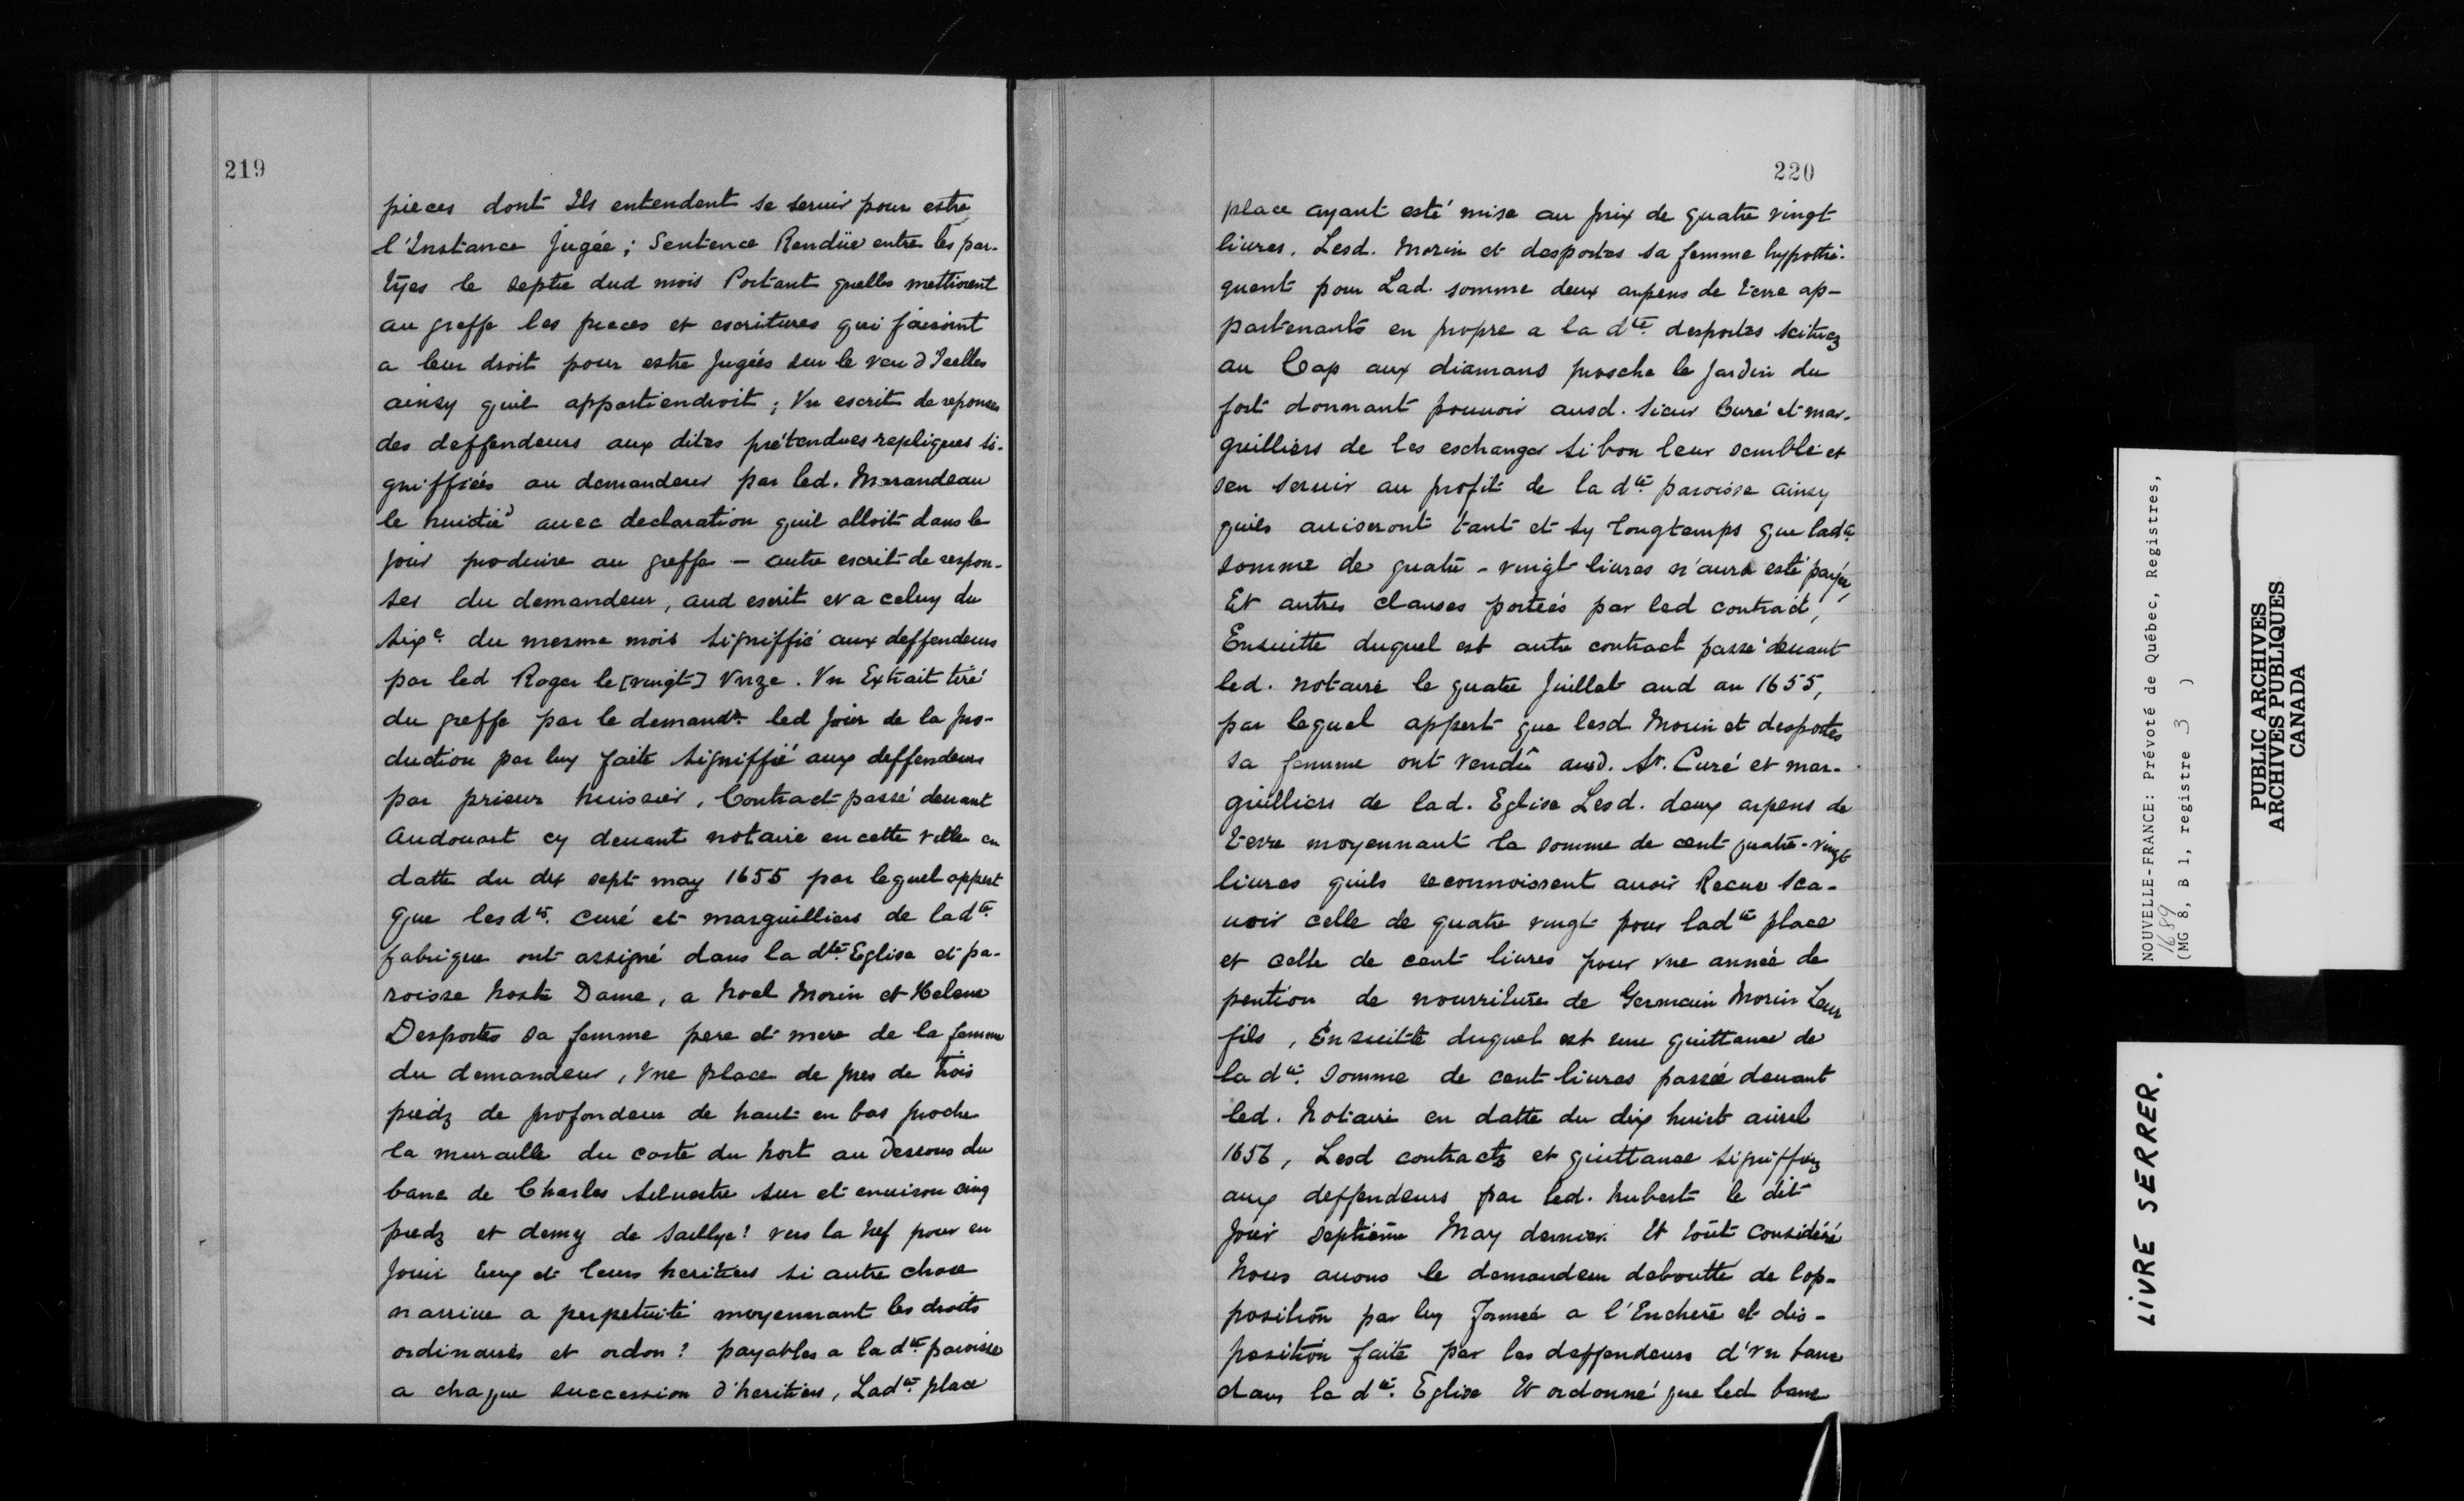 219
pieces dont Ils entendent se seruir pour estre
l'Instance Jugée ; Sentence Rendüe entre les par-
tÿes le septe dud mois Portant quelles mettroient
au greffe les pieces et escritures qui faisoint
a leur droit pour estre Jugées sur le veu d'Icelles
ainsy quil appartiendroit ; Vn escrit de reponses
des deffendeurs aux dites prétendues repliques si-
gniffiées au demandeur par led. Marandeau
le huictie auec declaration quil alloit dans le
jour produire au greffe - autre escrit de respon-
ses du demandeur, aud escrit et a celuy du
sixe du mesme mois signiffié aux deffendeurs
par led Roger le [vingt] Vnze. Vn Extrait tiré
du greffe par le demandr led Jour de la pro-
duction par luy faite signiffié aux deffendeurs
par prieur huissier, Contract passé deuant
Audouart cy deuant notaire en cette ville en
datte du dix sept may 1655 par lequel appert
que lesdts. curé et marguilliers de ladte.
fabrique ont assigné dans la dte. Eglise et pa-
roisse Nostre Dame, a Noel Morin et Helene
Desportes sa femme pere et mere de la femme
du demandeur, Vne place de pres de trois
piedz de profondeur de haut en bas proche
la muraille du costé du Nort au Dessous du
banc de Charles Seluestre sur et enuiron cinq
piedz et demy de Saillye? vers la Nef pour en
Jouir Eux et leurs heritiers si autre chose
n'arriue a perpetuité moyennant les droits
ordinaires et ordon? payables a la dte paroisse
a chaque succession d'heritiers, Ladte. place
220
place ayant esté mise au prix de quatre vingt
liures. Lesd. Morin et desportes sa femme hypothe-
quent pour Lad. somme deux arpens de terre ap-
partenants en propre a la dte. desportes scituez
au Cap aux diamans prosche le Jardin du
fort donnant pouuoir ausd. sieur Curé et mar-
guilliers de les eschanger si bon leur semble et
sen seruir au profit de la dte. paroisse ainsy
quils auiseront tant et sy longtemps que ladte.
somme de quatre-vingt liures n'aura esté payée,
Et autres clauses portées par led contract,
Ensuitte duquel est autre contract passé deuant
led. notaire le quatre Juillet aud an 1655,
par lequel appert que lesd Morin et desportes
sa femme ont vendû ausd. Sr. Curé et mar-
guilliers de lad. Eglise Lesd. deux arpens de
terre moyennant la somme de cent quatre-vingt
liures quils reconnoissent auoir Receue Sca-
uoir celle de quatre vingt pour ladte place
et celle de cent liures pour vne année de
pention de nourriture de Germain Morin Leur
fils, Ensuitte duquel est une quittance de
la dte. somme de cent liures passée deuant
led. Notaire en datte du dix huict auirel
1656, Lesd contracts et quittance signiffiez
aux deffendeurs par led. hubert le dit
Jour septième May dernier. Et tout considéré
Nous auons le demandeur deboutté de lop-
position par luy formée a l'Enchere et dis-
position faite par les deffendeurs d'vn banc
dans la dte. Eglise Et ordonné que led banc
NOUVELLE-FRANCE: Prévoté de Québec, Registres,
1689
(MG 8, B 1, registre 3 )
PUBLIC ARCHIVES
ARCHIVES PUBLIQUES
CANADA
LIVRE SERRER.